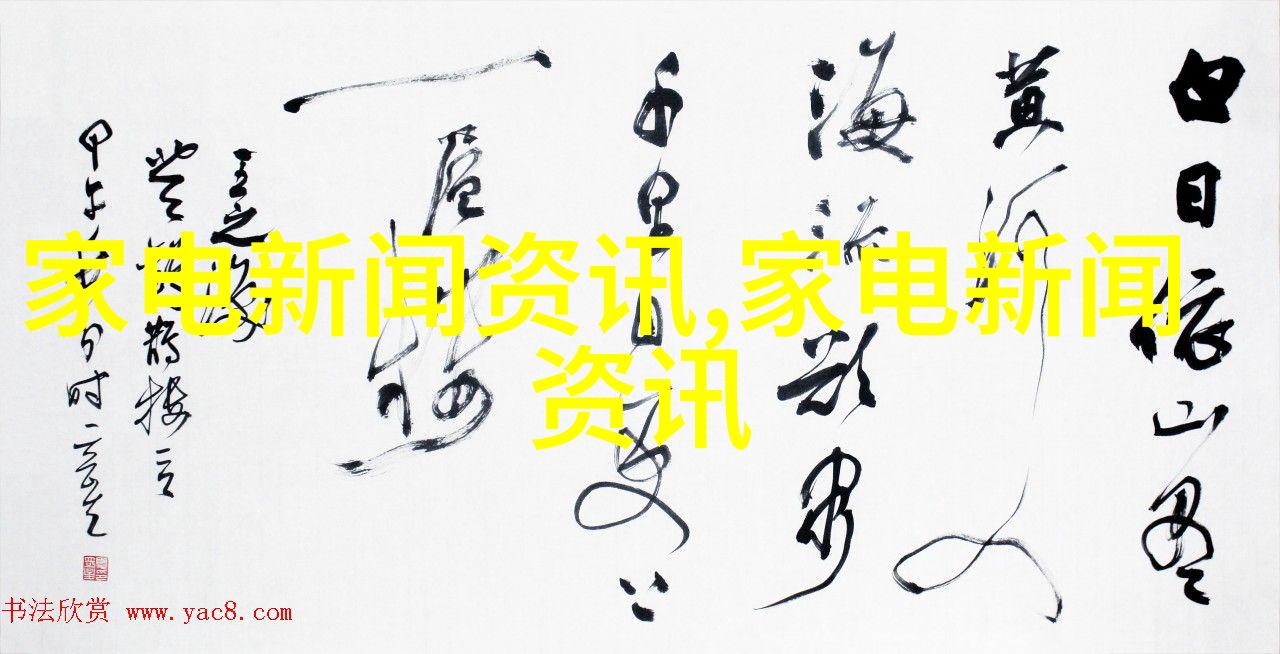 家电新闻资讯,家电新闻
资讯
白日依山尽
黄河入
海流欲穷
千里目更上
一層楼
王之涣
登鹊楼
甲午
书法欣赏 www.yac8.com